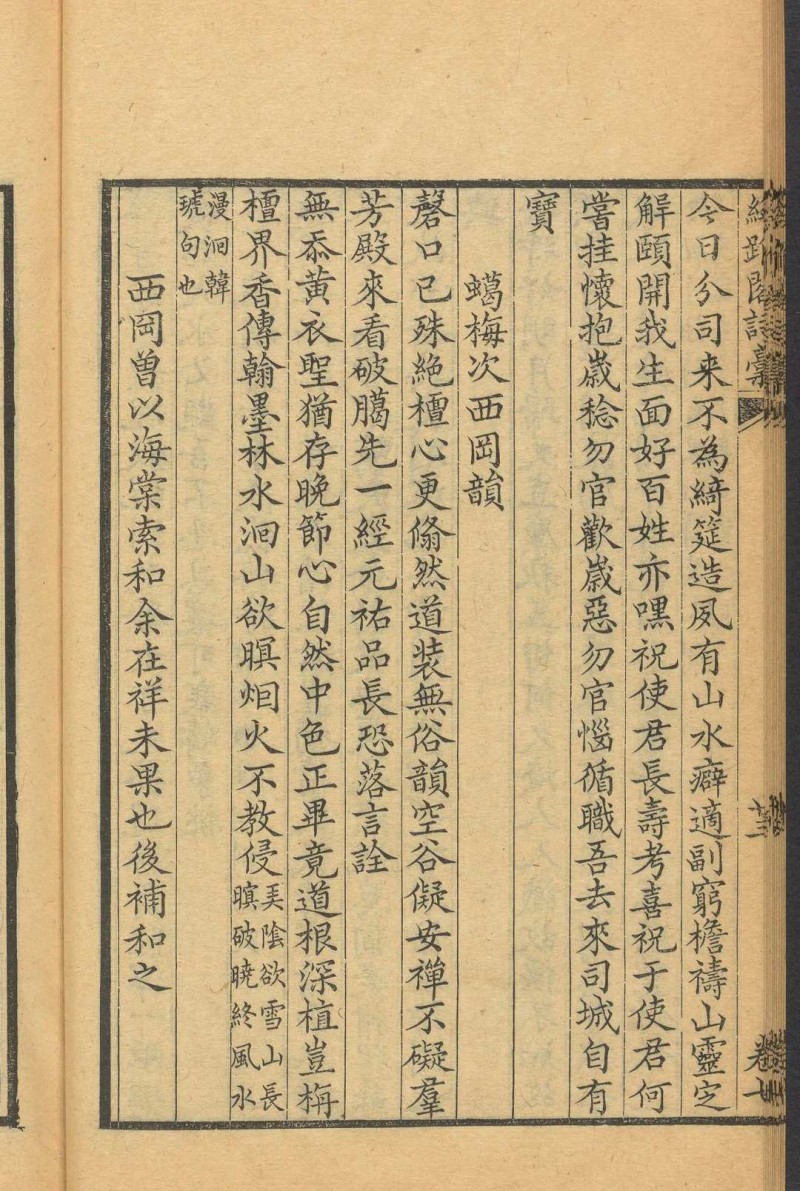 今日分司来不為綺筵造夙有山水癖適副窮檐禱山靈定
解頤開我生面好百姓亦嘿祝使君長壽考喜祝于使君何
嘗挂懷抱嵗稔勿官歡嵗惡勿官惱循職吾去來司城自有
寶
蠟梅次西岡韻
磬口已殊絶檀心更翛然道装無俗韻空谷儗安禪不礙羣
芳殿來看破臈先一經元祐品長恐落言詮
無忝黃衣聖猶存晚節心自然中色正畢竟道根深植豈梅
檀界香傳翰墨林水洄山欲暝烟火不教侵
美陰欲雪山長
暝破曉終風水
漫洄韓
琥句也
西岡曽以海棠索和余在祥未果也後補和之
卷十
十三